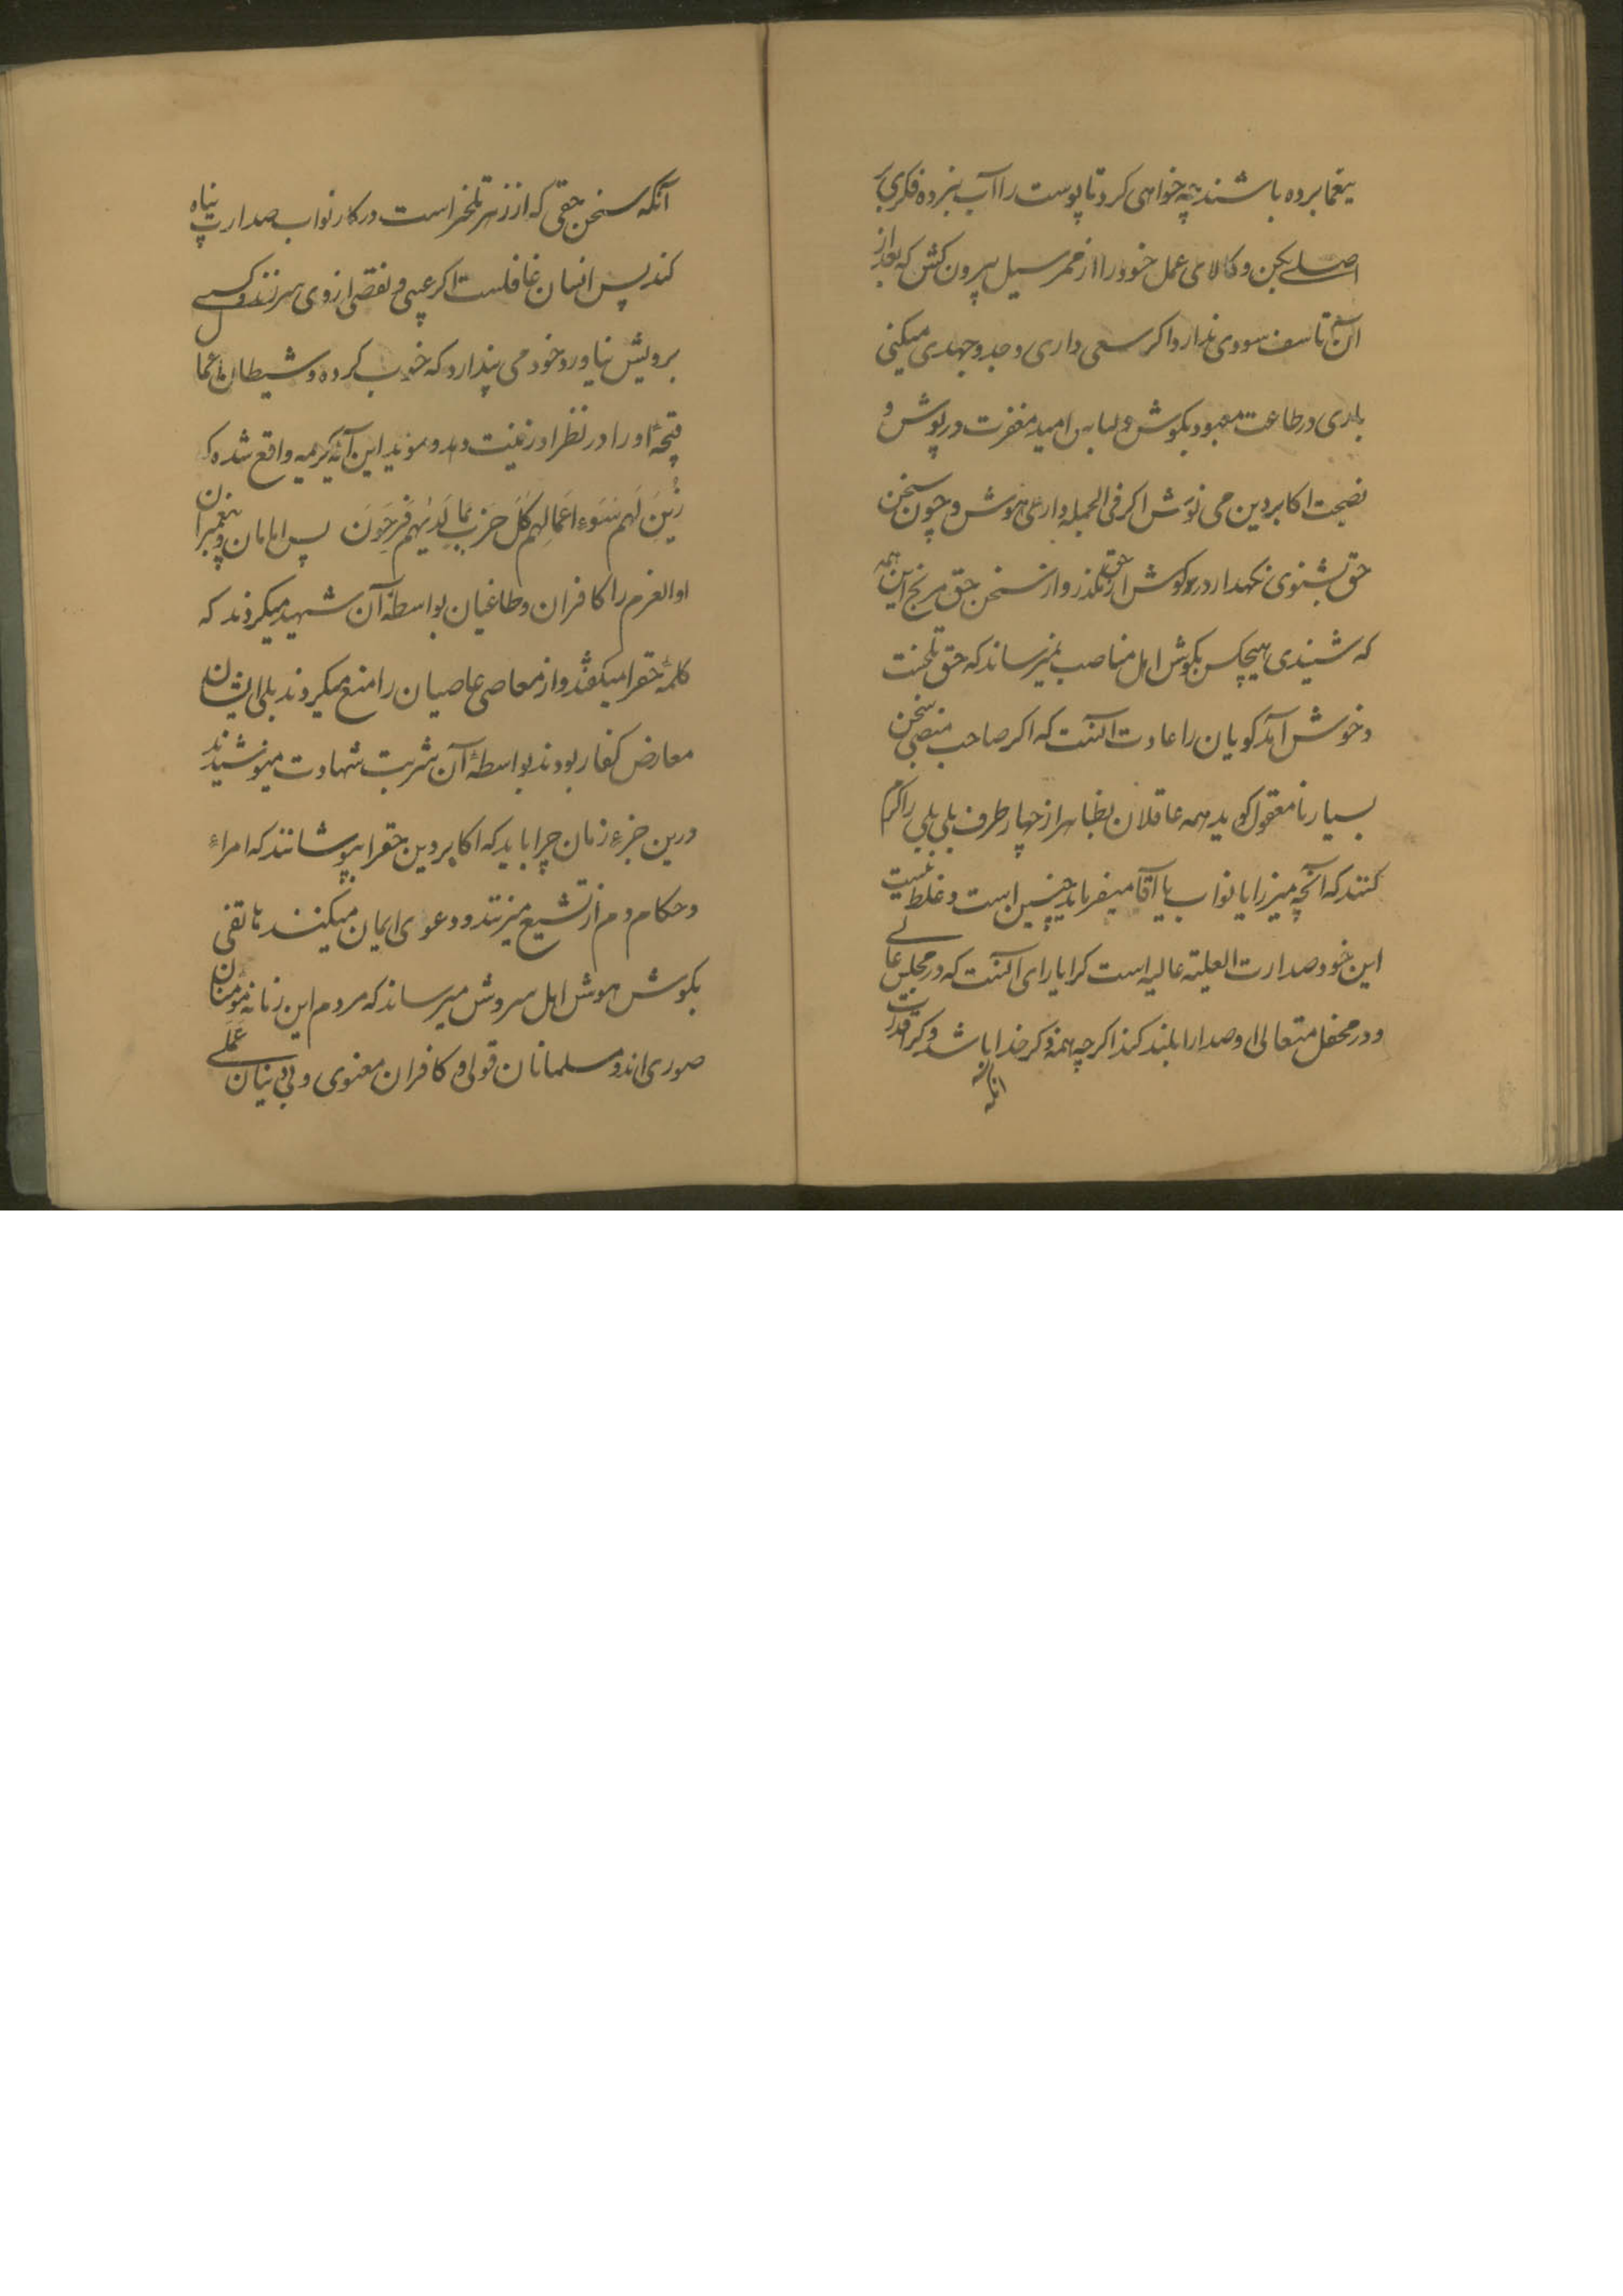 یغما برده باشند چه خواهی کرد تا پوست را آب نبرده فکری بر
اصلے بکن و کالای عمل خود را از ممر سیل بیرون کش که بعد از
آن تاسف سودی ندارد اکر سعی داری و جد و جهدی میکنی
باری در طاعت معبود بکوش و لباس امید مغفرت در پوش و
نصیحت اکابر دین می نوش اکر فی الجمله داری هوش و چون سخن
حق بشنوی نکهدار در کوش از حق مکذر و از سخن حق مرنج این همه
که شنیدی هیچکس بکوش اهل مناصب نمیرساند که حق تلخست
و خوش آمد کویان را عادت آنست که اکر صاحب منصبی سخن
بسیار نامعقول کوید همه عاقلان بظاهر از چهار طرف بلی بلی را کرم
کنند که آنچه میرزا یا نواب یا آقا میفرماید چنین است و غلط نیست
این خود صدارت العلیته عالیه است کرا یارای آنست که در مجلس عالے
و در محفل متعالی او صدا را بلند کند اکرچه همه ذکر خدا باشد و کرا قدرت
آنکه
آنکه سخن حقی که از زهر تلخمر است در کار نواب صدارت پناه
کند پس انسان غافلست اکر عیبی و نقصی از وی سر زند و کسے
برویش نیاورد خود می پندارد که خوب کرده و شیطان اعمال
قبیحهٔ او را در نظر او زینت دهد و موید این آیهٔ کریمه واقع شده که
زُیِّنَ لَهُم سُوء اَعمَالِهِم کُلّ حِزبٍ بِمَا لَدَیهِم فَرِحُونَ پس امامان و پیغمبران
اوالعزم را کافران و طاغیان بواسطهٔ آن شهید میکردند که
کلمهٔ حقرا میکفتند و از معاصی عاصیان را منع میکردند بلی ایشان
معارض کفار بودند بواسطهٔ آن شربت شهادت مینوشیدند
درین جزء زمان چرا باید که اکابر دین حقرا بپوشانند که امراء
و حکام دم از تشیع میزنند و دعوی ایمان میکنند هاتفی
بکوش هوش اهل سروش میرساند که مردم این زمانه مؤمنان
صوری اند و مسلمانان قولی و کافران معنوی و بی دینان عَمَلے